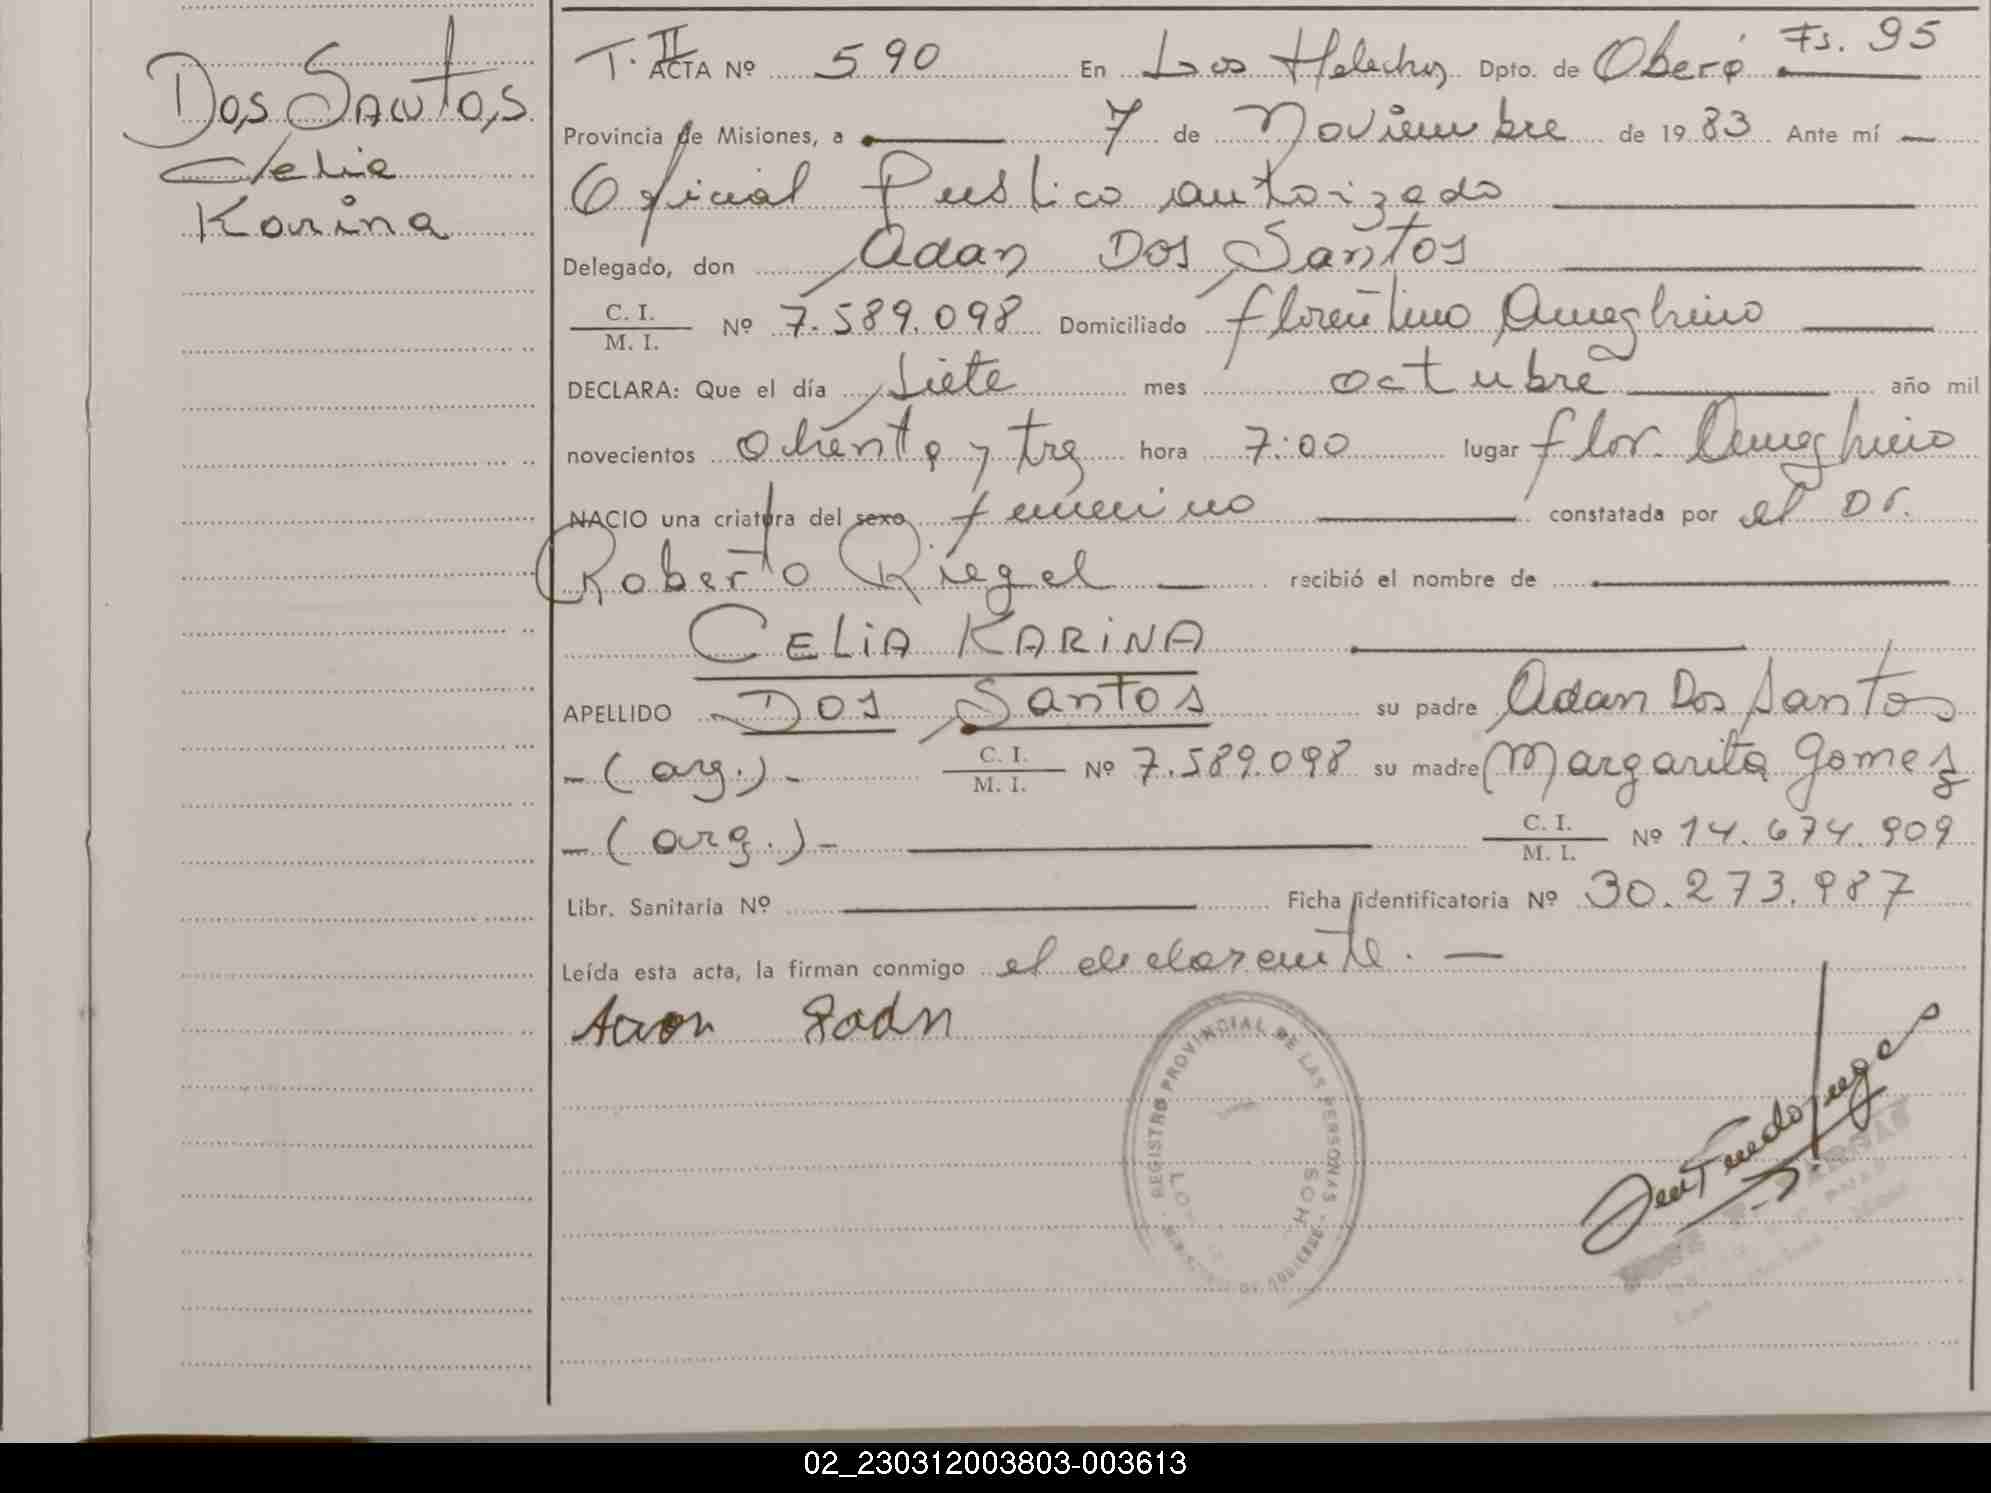 Dos Santos
Celia
Karina
T. II ACTA Nº 590 En Los Helechos Dpto. de Oberá Fs. 95
Provincia de Misiones, a 7 de Noviembre de 1983 Ante mí
Oficial Publico autorizado
Delegado, don Adan Dos Santos
C. I. / M. I. Nº 7.589.098 Domiciliado Florentino Ameghino
DECLARA: Que el día siete mes octubre año mil
novecientos ochenta y tres hora 7:00 lugar Flor. Ameghino
NACIO una criatura del sexo femenino constatada por el Dr.
Roberto Riegel recibió el nombre de
CELIA KARINA
APELLIDO Dos Santos su padre Adan Dos Santos
-(arg.)- C. I. / M. I. Nº 7.589.098 su madre Margarita Gomes
-(arg.)- C. I. / M. I. Nº 14.674.909
Libr. Sanitaria Nº Ficha identificatoria Nº 30.273.987
Leída esta acta, la firman conmigo el declarante.
REGISTRO PROVINCIAL DE LAS PERSONAS
02_230312003803-003613